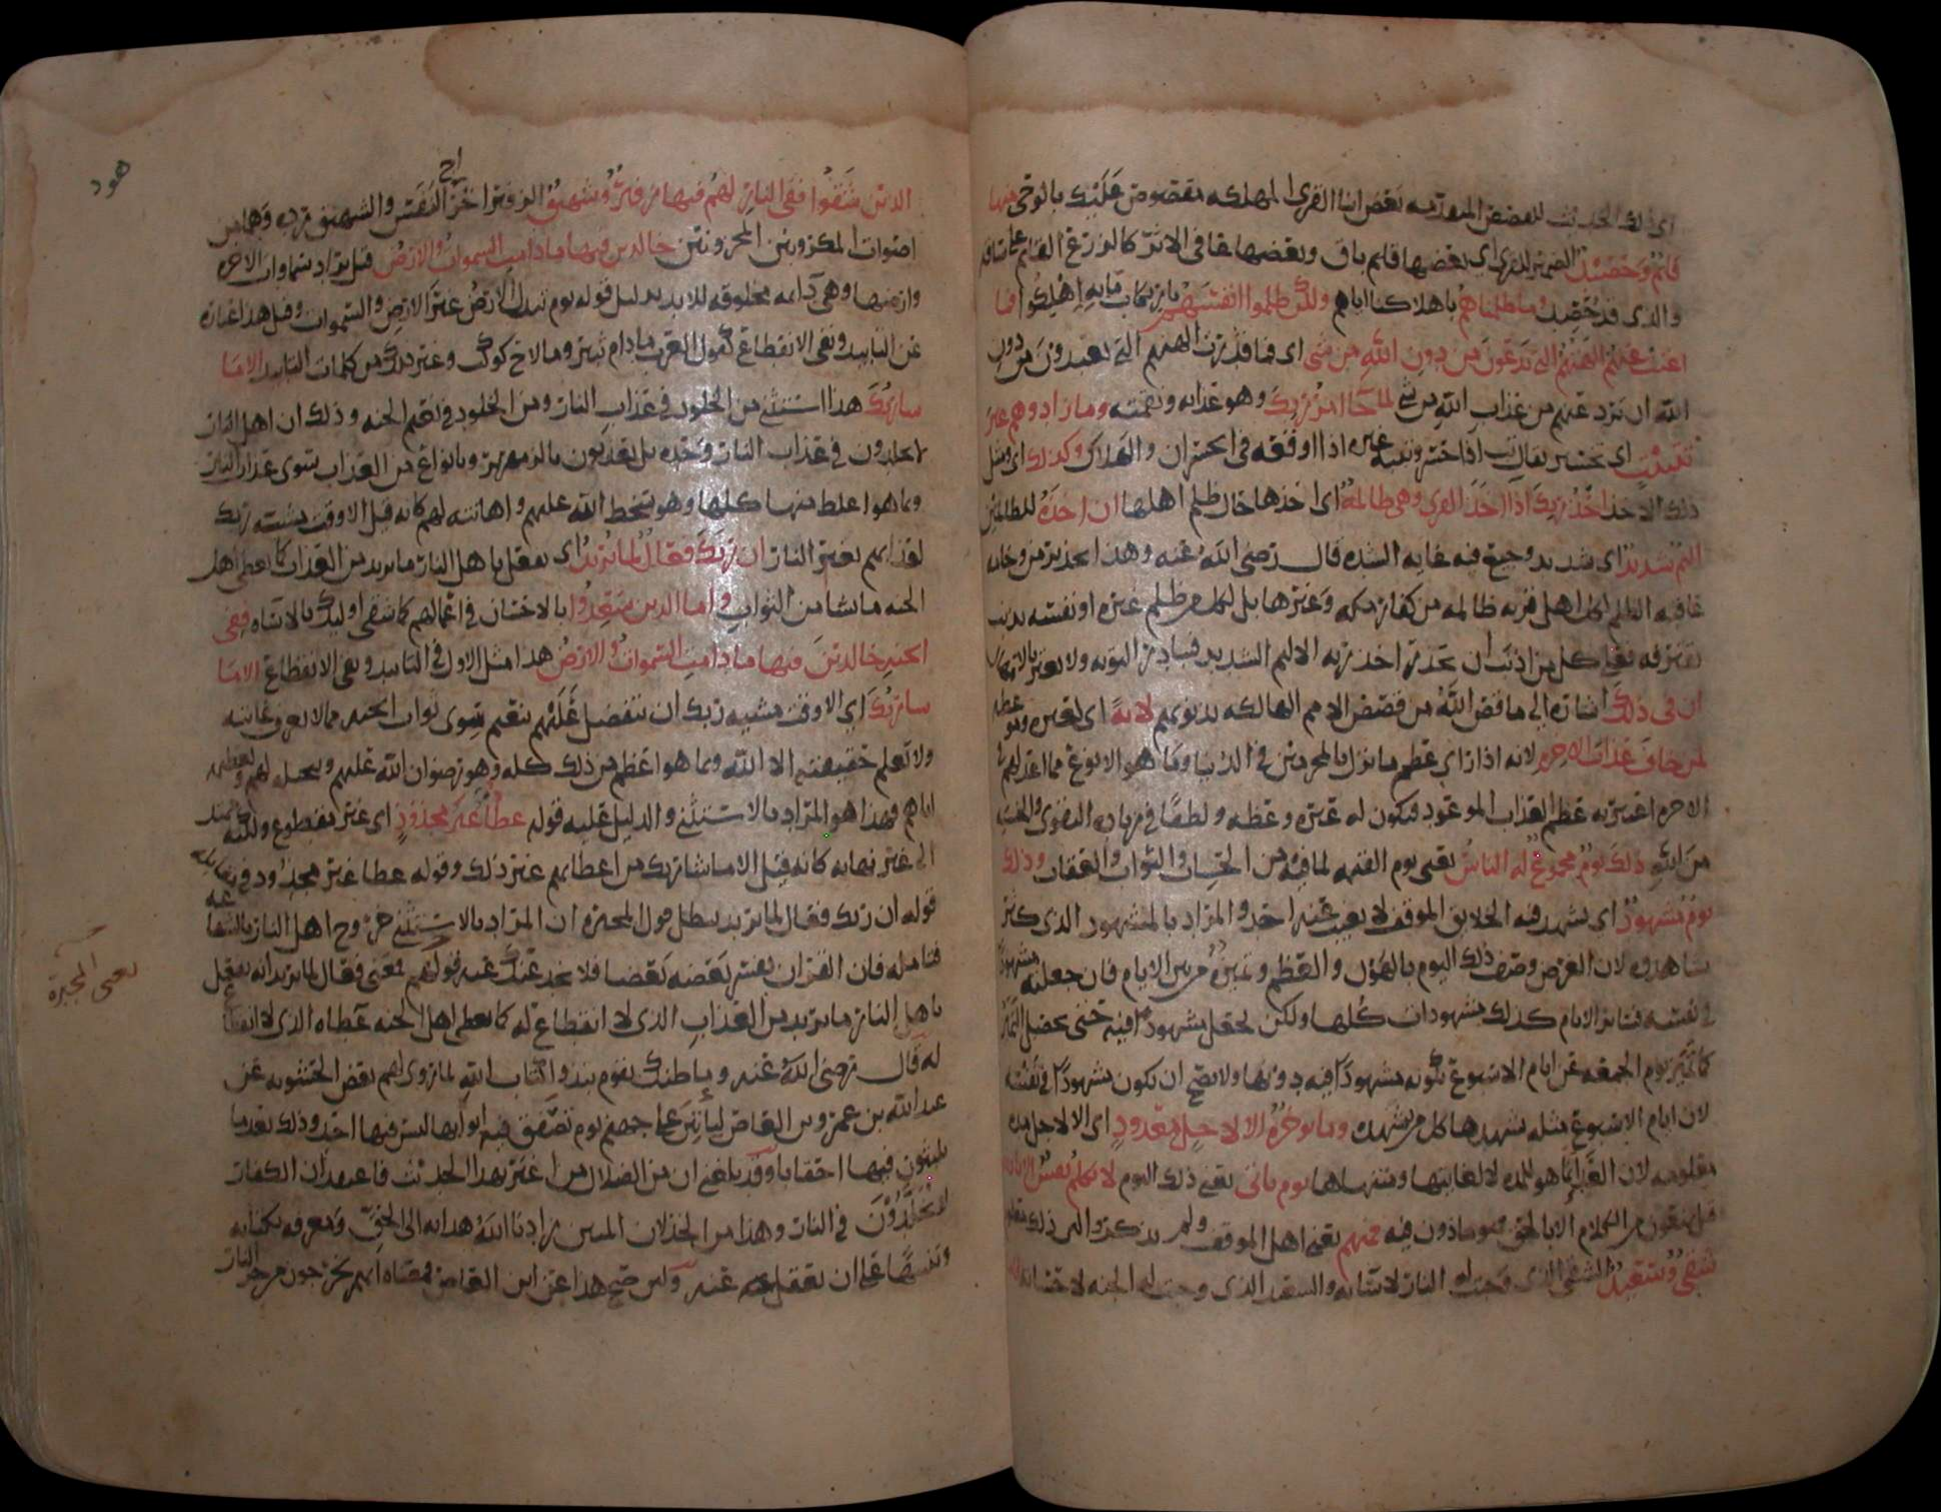 اى ذلك الحديث للقصص المتقدمه بعض انباا القرى المهلكه مقصوص عليك بالوحى منها
قائم وحصيد الضمير للقرى اى بعضها قايم باق وبعضها عافى الاثر كالزرع القايم على ساقه
والذى قد حصد وما ظلمناهم باهلاكنا اياهم ولكن ظلموا انفسهم بارتكاب ما به اهلكوا فما
اغنت عنهم الهتهم التى تدعون من دون الله من شى اى فما قدرت الهتهم التى يعبدون من دون
الله ان ترد عنهم من عذاب الله من شى لما جا امر ربك وهو عذابه ونقمته وما زادوهم غير
تتبيب اى تخسير يقال تب اذا خسر وتببه غيره اذا اوقعه فى الخسران والهلاك وكذلك اى ومثل
ذلك الاخذ اخذ ربك اذا اخذ القرى وهى ظالمة اى اخذها حال ظلم اهلها ان اخذه للظالمين
اليم شديد اى شديد وجيع فيه غايه الشده قال رضى الله عنه وهذا تحذير من وخامه
عاقبه الظلم لكل اهل قريه ظالمه من كفار مكه وغيرها بل لكل من ظلم غيره او نفسه بذنب
يقترفه فعلى كل من اذنب ان يحذر اخذ ربه الاليم الشديد فيبادر التوبه ولا يغتر بالامهال
ان فى ذلك اشاره الى ما قص الله من قصص الامم الهالكه بذنوبهم لاية اى لعبره وموعظه
لمن خاف عذاب الاخره لانه اذا راى عظم ما نزل بالمجرمين فى الدنيا وما هو الا نموذج مما اعد لهم فى
الاخره اعتبر به عظم العذاب الموعود فيكون له عبره وعظه ولطفا فى زياده التقوى والخشيه
من الله ذلك يوم مجموع له الناس يعنى يوم القيمه لما فيه من الحساب والثواب والعقاب وذلك
يوم مشهود اى يشهد فيه الخلايق الموقف لا يغيب عنه احد والمراد بالمشهود الذى كثر
شاهدوه لان الغرض وصف ذلك اليوم بالهول والعظم وتميزه من بين الايام فان جعلته مشهودا
فى نفسه فسائر الايام كذلك مشهودات كلها ولكن يجعل مشهودا فيه حتى يحصل التميز
كما تميز يوم الجمعه عن ايام الاسبوع بكونه مشهودا فيه دونها ولا يصح ان يكون مشهودا فى نفسه
لان ايام الاسبوع مثله يشهدها كل من يشهده وما نؤخره الا لاجل معدود اى الا لاجل مده
معلومه لان العد انما هو للمده لا لغايتها ومنتهاها يوم ياتى يعنى ذلك اليوم لا تكلم نفس الا باذنه
قيل يمنعون من الكلام الا بالحق فهو ماذون فيه فمنهم يعنى اهل الموقف ولم يذكروا لان ذلك معلوم
شقى وسعيد الشقى الذى وجبت له النار لاساته والسعيد الذى وجبت له الجنه لاحسانه فاما
هود
الذين شقوا ففى النار لهم فيها زفير وشهيق الزفير اخراج النفس والشهيق رده وهما من
اصوات المكروبين المحزونين خالدين فيها ما دامت السموات والارض قيل يراد سماوات الاخره
وارضها وهى دائمه مخلوقه للابد بدليل قوله يوم تبدل الارض غير الارض والسموات وقيل هذا عباره
عن التابيد ونفى الانقطاع كقول العرب ما دام ثبير وما لاح كوكب وغير ذلك من كلمات التابيد الا ما
شا ربك هذا استثنى من الخلود فى عذاب النار ومن الخلود فى نعيم الجنه وذلك ان اهل النار
لا يخلدون فى عذاب النار وحده بل يعذبون بالزمهرير وبانواع من العذاب سوى عذاب النار
وبما هو اغلظ منها كلها وهو سخط الله عليهم واهانته لهم كانه قيل الا وقت مشيه ربك
لعذابهم بغير النار ان ربك فعال لما يريد اى يفعل باهل النار ما يريد من العذاب كما يعطى اهل
الجنه ما يشا من الثواب واما الذين سعدوا بالاحسان فى اعمالهم كما شقى اوليك بالاساه ففى
الجنه خالدين فيها ما دامت السموات والارض هذا مثل الاول فى التابيد ونفى الانقطاع الا ما
شا ربك اى الا وقت مشيه ربك ان يتفضل عليهم بنعيم سوى ثواب الجنه مما لا يعرف غايته
ولا يعلم حقيقته الا الله وبما هو اعظم من ذلك كله وهو رضوان الله عليهم وتبجيله لهم وتعظيمه
اياهم فهذا هو المراد بالاستثنى والدليل عليه قوله عطا غير مجذوذ اى غير مقطوع ولكنه ممتد
الى غير نهايه كانه قيل الا ما شا ربك من اعطائهم غير ذلك وقوله عطا غير مجذوذ فى مقابله
قوله ان ربك فعال لما يريد يبطل قول المجبره ان المراد بالاستثنى خروج اهل النار بالشفاعه
فتامله فان القران يفسر بعضه بعضا فلا يخدعنك عنه قولهم بمعنى فعال لما يريد انه يفعل
باهل النار ما يريد من العذاب الذى لا انقطاع له كما يعطى اهل الجنه عطاه الذى لا انقطاع
له قال رضى الله عنه وما ظنك بقوم نبذوا كتاب الله لما روى لهم بعض الحشويه عن
عبد الله بن عمرو بن العاص ليأتين على جهنم يوم تصفق فيه ابوابها ليس فيها احد وذلك بعد ما
يلبثون فيها احقابا وقد بلغنى ان من الضلال من اغتر بهذا الحديث فاعتقد ان الكفار
لا يخلدون فى النار وهذا من الخذلان المبين زادنا الله هدايه الى الحق ومعرفه بكتابه
وتنبيها على ان نعقل عنه ولئن صح هذا عن ابن العاص فمعناه انهم يخرجون من حر النار
يعنى المجبرة